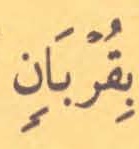 بِقُرْبَانٍ